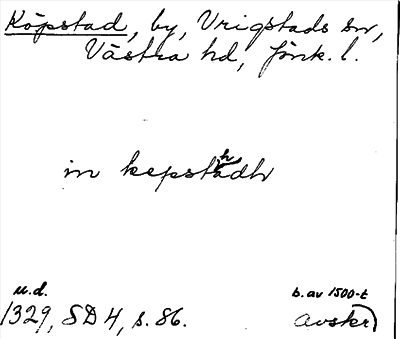 Köpstad, by, Vrigstads sn,
Västra hd, Jönk. l.
in kepstadh
u.d. b. av 1500-t
1329, SD 4, s. 86. avskr)